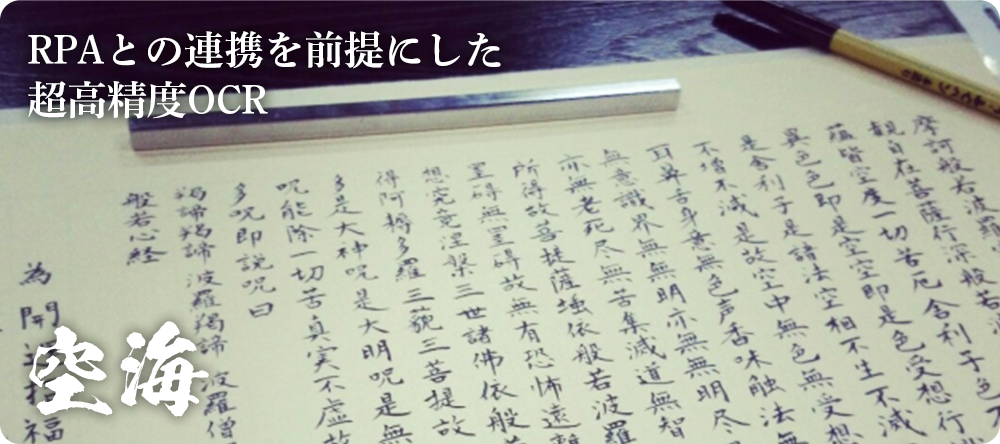 RPAとの連携を前提にした
超高精度OCR
摩訶般若波羅
観自在菩薩行深般若
蘊皆空度一切苦厄舎利子色
異色色即是空空即是色受想行
是舎利子是諸法空相不生不滅
不増不減是故空中無色無受想
耳鼻舌身意無色声香味触法無
無意識界無無明亦無無明尽
亦無老死尽無苦集滅道無智
所得故菩提薩埵依般若波羅
罣碍無罣碍故無有恐怖遠離
想究竟涅槃三世諸佛依般
得阿耨多羅三藐三菩提故
多是大神呪是大明呪是無
呪能除一切苦真実不虚故
多呪即説呪曰
羯諦羯諦波羅羯諦波羅僧
般若心経
為開運招福
空海